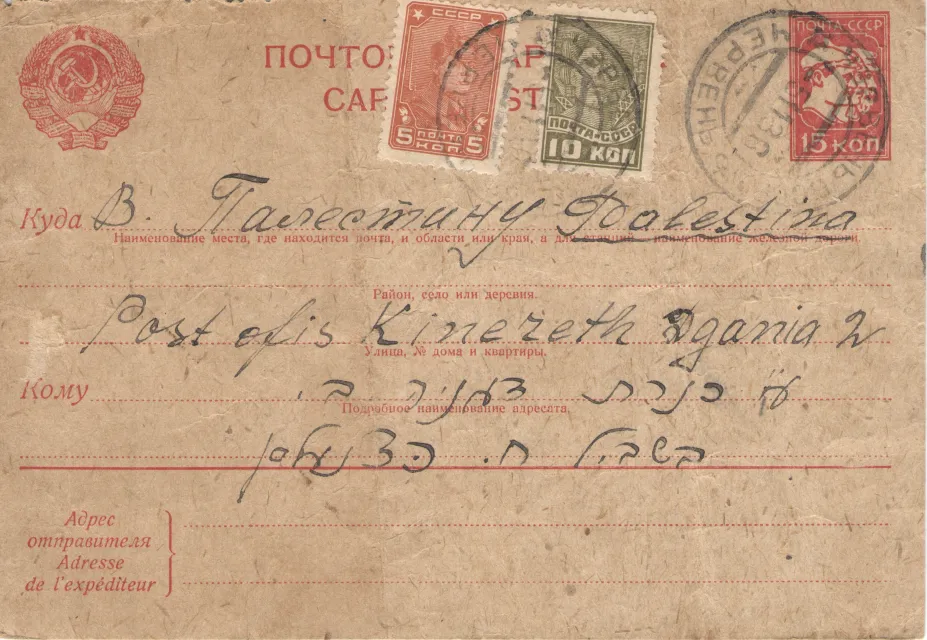 СССР
5 ПОЧТА КОП. 5
ПОЧТА-СССР
10 КОП
ПОЧТА-СССР
15 КОП
ЧЕРВЕНЬ
Куда В. Палестину Palestina
Наименование места, где находится почта, и области или края, а для станций наименование железной дороги.
Район, село или деревня.
Post ofis Kinezeth Dgania 2
Улица, № дома и квартиры.
Кому
כנרת
Подробное наименование адресата.
בשביל ח.
Адрес
отправителя
Adresse
de l'expéditeur